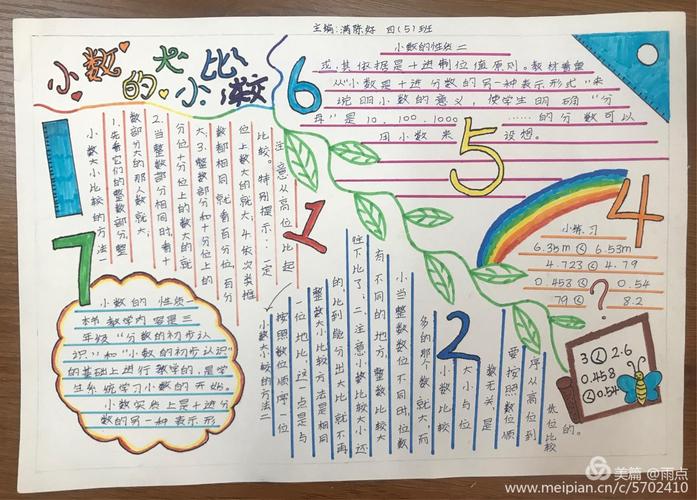 主编:满陈好 四(5)班
小数的大小比较
小数的性质二
或,其依据是十进制位值原则。教材着重
从"小数是十进分数的另一种表示形式"来
说明小数的意义,使学生明确"分
母"是10、100、1000
……的分数可以
用小数来
设想。
6
5
4
1
7
2
小数大小比较的方法一
1.先看它们的整数部分,整
数部分大的那人数就大;
2.当整数部分相同时,看十
分位十分位上的数大的就
大;3.整数部分和十分位上的
数都相同就看百分位,百分
位上数大的就大,4.依次类推
比较。特别提示:一定
注意从高位比起
小练习
6.35m < 6.53m
4.723 < 4.79
0.458 < 0.54
79 < 8.2
?
3 < 2.6
0.458
< 0.54
小数的 性质一
本节教学内容是三
年级"分数的初步认
识"和"小数的初步认识"
的基础上进行教学的,是学
生系统学习小数的开始。
小数实质上是十进分
数的另一种表示形
小数大小较的方法二
按照数位顺序一位
一位地比,这一点是与
整数大小比较方法是相同
的,比到能分出大比就不再
往下比了;二.注意小数比较大小还
有不同的地方,整数比较大
小当整数数位不同时,位数
多的那个数就大,而
小数比较
大小与位
数无关,是
要按照数位顺
序从高位到
低位比较
的。
美篇 @雨点
www.meipian.cn/c/5702410